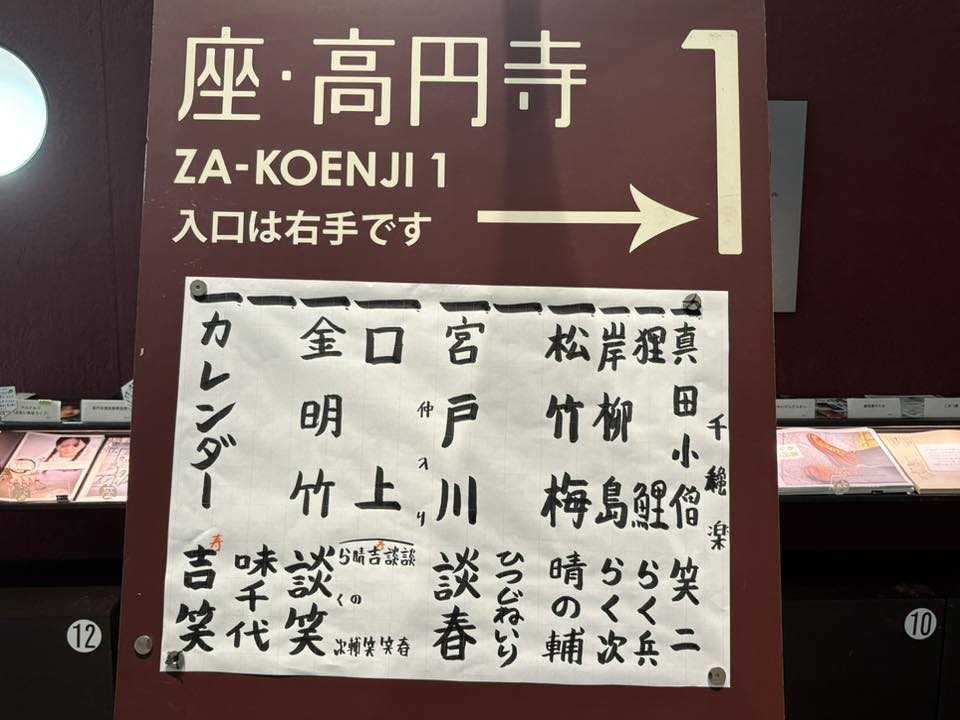 座・高円寺
1
ZA-KOENJI 1
入口は右手です
千穐楽
一 真田小僧 笑二
一 狸鯉 らく兵
一 岸柳島 らく次
一 松竹梅 晴の輔
一 ひつじねいり
一 宮戸川 談春
仲入り
一 口上 談春 談笑 吉笑 晴の輔 らく次
一 金明竹 談笑
一 味千代
一 カレンダー 吉笑
寿
12
10